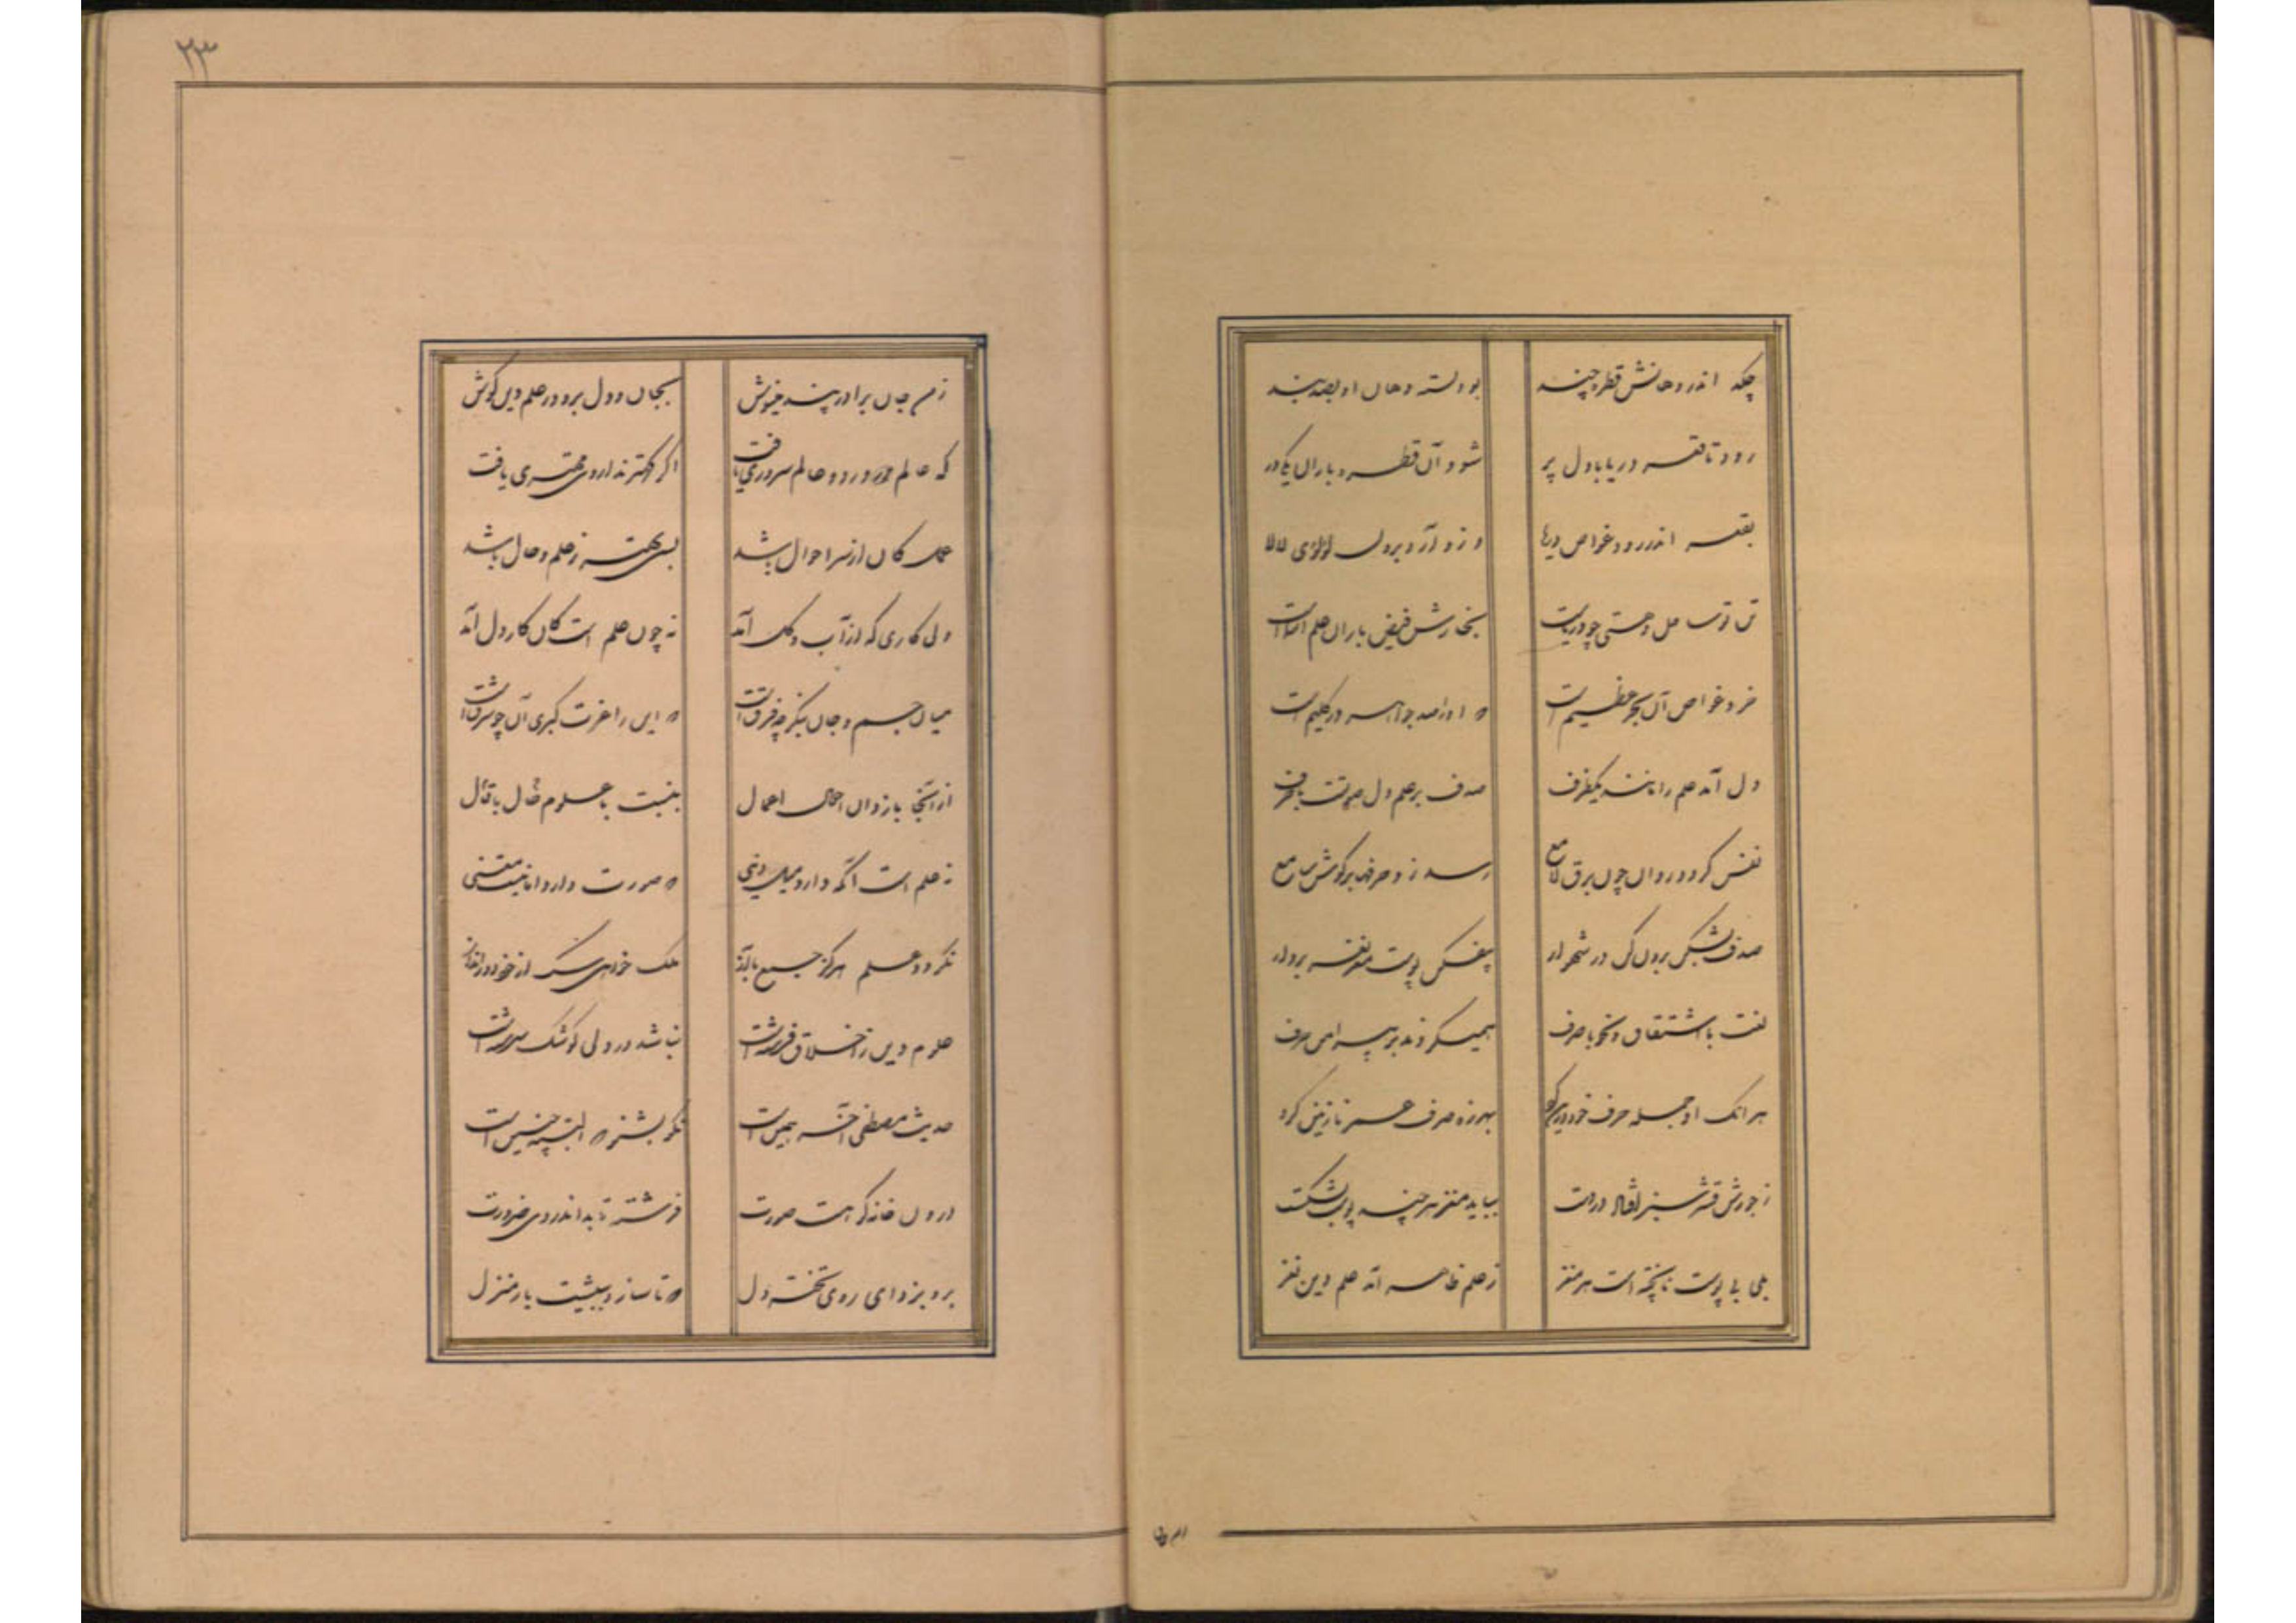 چکد اندر دهانش قطره چند شود بسته دهان او بصد بند
رود تا قعر دریا با دل پر شود آن قطره باران یکی در
بقعر اندر رود غواص دریا وزو آرد برون لؤلؤی لالا
تن تو ساحل و هستی چو دریاست بخارش فیض باران علم اسماست
خرد غواص آن بحر عظیم است که او را صد جواهر در گلیم است
دل آمد علم را مانند یکظرف صدف بر علم دل صوتست با حرف
نفس گردد روان چون برق لامع رسد زو حرفها بر گوش سامع
صدف بشکن برون کن در شهوار بیفکن پوست مغز نغز بردار
لغت با اشتقاق و نحو با صرف همیگردد همه پیرامن حرف
هر آنک او جمله عمر خود درین کرد بهرزه صرف عمر نازنین کرد
ز جوزش قشر سبز افتاد در دست نیابد مغز هر چند پوست بشکست
بلی بی پوست ناپخته است هر مغز ز علم ظاهر آمد علم دین نغز
۲۳
ز من جان برادر پند بنیوش بجان و دل برو در علم دین کوش
که عالم در دو عالم سروری یافت اگر کهتر بد از وی مهتری یافت
عمل کان از سر احوال باشد بسی بهتر ز علم و حال باشد
ولی کاری که از آب و گل آمد نه چون علم است کان کار دل آمد
میان جسم و جان بنگر چه فرق است که این را غرب گیری آن چو شرق است
از آنجا باز دان احوال اعمال بنسبت با علوم قال با حال
نه علم است آنکه دارد میل دنیی که صورت دارد اما نیست معنی
نگردد علم هرگز جمع با آز ملک خواهی سگ از خود دور انداز
علوم دین ز اخلاق فرشته است نباشد در دلی کو سگ سرشت است
حدیث مصطفی آخر همین است نکو بشنو که البته چنین است
درون خانه که هست صورت فرشته ناید اندر وی ضرورت
برو بزدای روی تخته دل که تا سازد بپیشت یار منزل